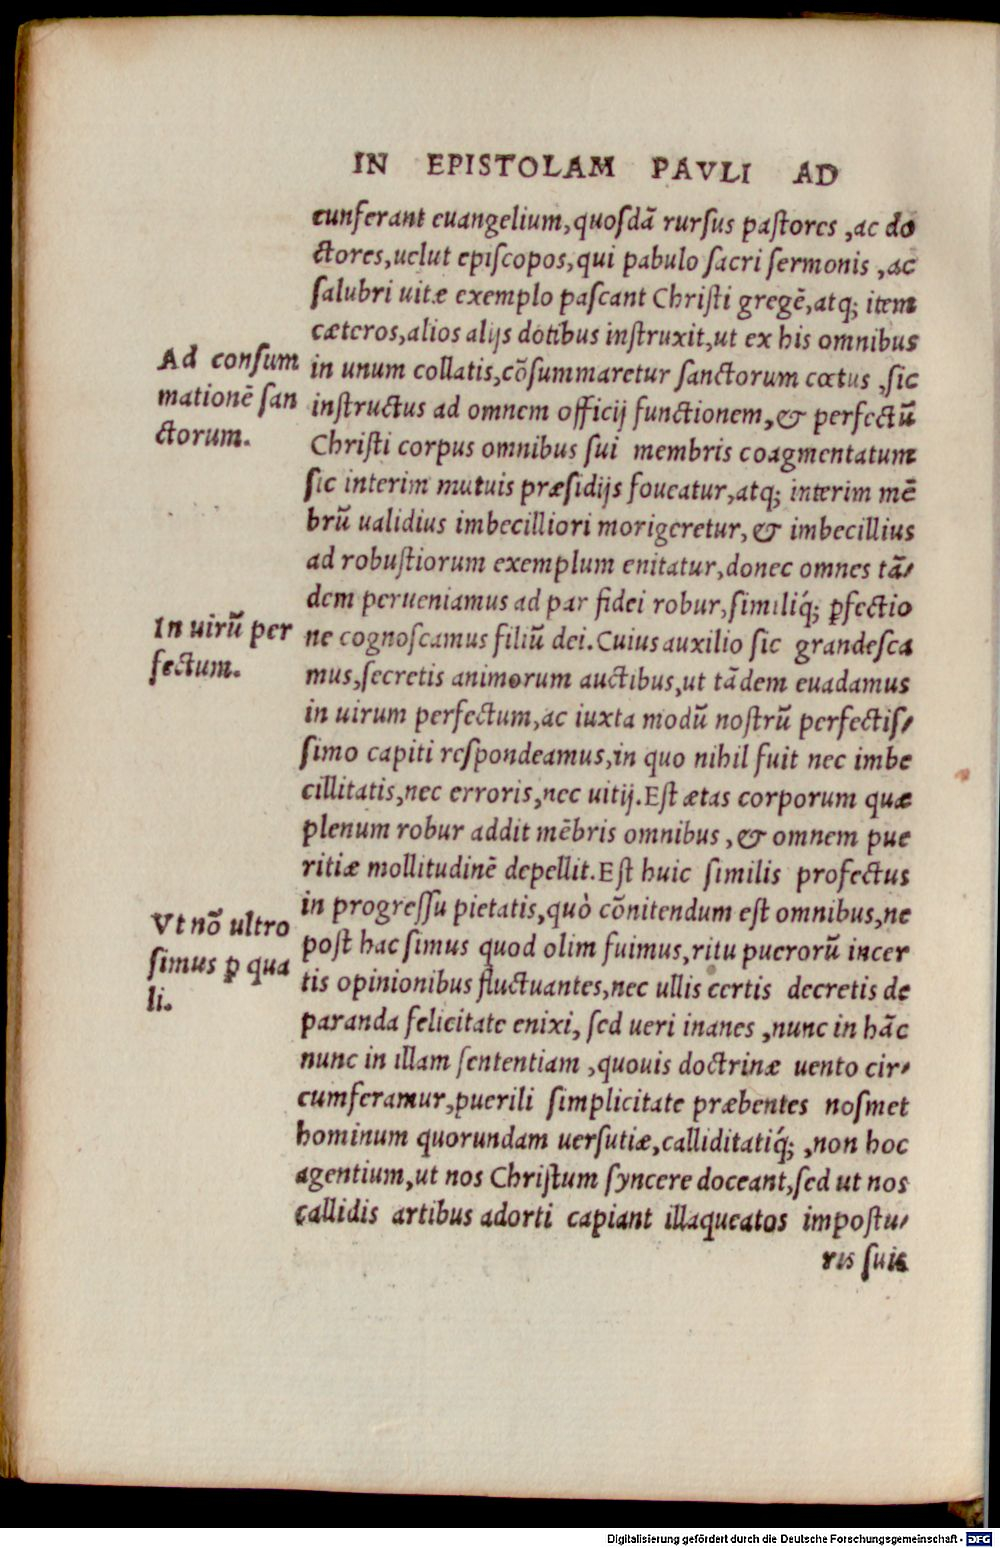 IN EPISTOLAM PAVLI AD
cunferant euangelium, quosdā rursus pastores, ac do
ctores, uelut episcopos, qui pabulo sacri sermonis, ac
salubri uitæ exemplo pascant Christi gregē, atq; item
cæteros, alios alijs dotibus instruxit, ut ex his omnibus
Ad consum
mationē san
ctorum.
in unum collatis, cōsummaretur sanctorum cœtus, sic
instructus ad omnem officij functionem, & perfectū
Christi corpus omnibus sui membris coagmentatum
sic interim mutuis præsidijs foueatur, atq; interim mē
brū ualidius imbecilliori morigeretur, & imbecillius
ad robustiorum exemplum enitatur, donec omnes tā-
dem perueniamus ad par fidei robur, similiq́; ꝑfectio
In uirū per
fectum.
ne cognoscamus filiū dei. Cuius auxilio sic grandesca
mus, secretis animorum auctibus, ut tādem euadamus
in uirum perfectum, ac iuxta modū nostrū perfectis-
simo capiti respondeamus, in quo nihil fuit nec imbe
cillitatis, nec erroris, nec uitij. Est ætas corporum quæ
plenum robur addit mēbris omnibus, & omnem pue
ritiæ mollitudinē depellit. Est huic similis profectus
in progressu pietatis, quò cōnitendum est omnibus, ne
Vt nō ultro
simus ꝑ qua
li.
post hac simus quod olim fuimus, ritu puerorū incer
tis opinionibus fluctuantes, nec ullis certis decretis de
paranda felicitate enixi, sed ueri inanes, nunc in hāc
nunc in illam sententiam, quouis doctrinæ uento cir-
cumferamur, puerili simplicitate præbentes nosmet
hominum quorundam uersutiæ, calliditatiq́;, non hoc
agentium, ut nos Christum syncere doceant, sed ut nos
callidis artibus adorti capiant illaqueatos impostu-
ris suis
Digitalisierung gefördert durch die Deutsche Forschungsgemeinschaft - DFG